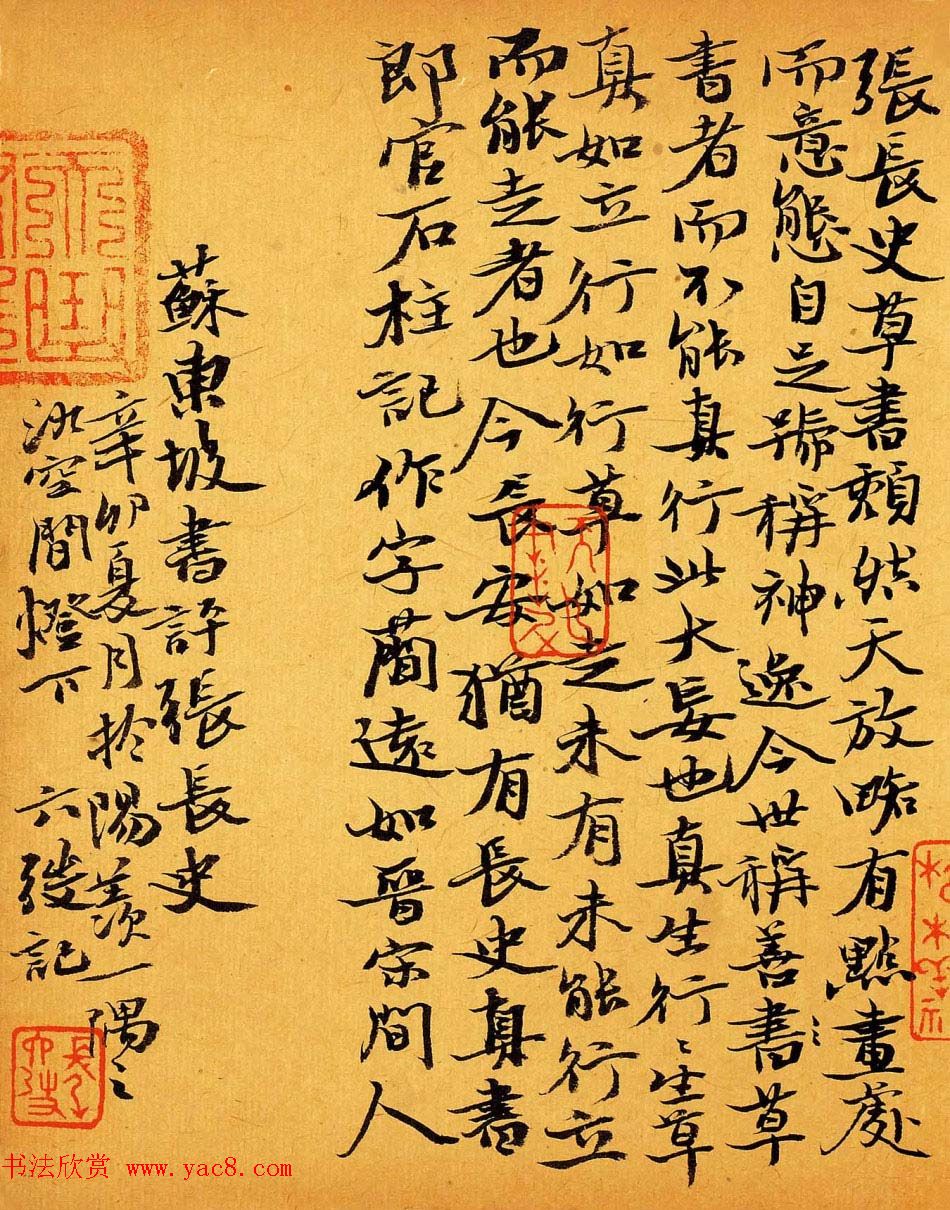 張長史草書頹然天放略有點畫處
而意態自足號稱神逸今世稱善書草
書者而不能真行此大妄也真生行行生草
真如立行如行草如走未有未能行立
而能走者也今長安猶有長史真書
郎官石柱記作字蕳遠如晉宋間人
蘇東坡書評張長史
辛卯夏月於陽羨一隅之
冰空間燈下 六弢記
书法欣赏 www.yac8.com